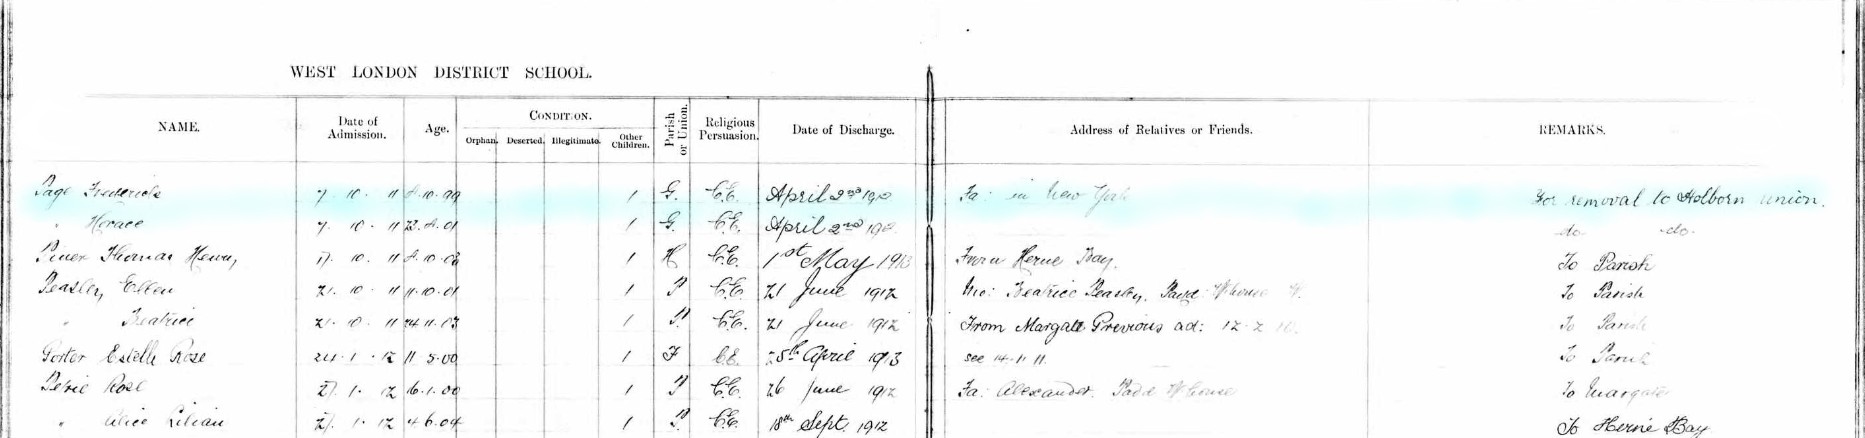 WEST LONDON DISTRICT SCHOOL.
NAME. Date of Admission. Age. CONDITION. Orphan. Deserted. Illegitimate. Other Children. Parish or Union. Religious Persuasion. Date of Discharge. Address of Relatives or Friends. REMARKS.
Page Frederick 7 10 11 8.10.99 1 G. C.E. April 2nd 191 Fa: in New York For removal to Holborn Union.
" Horace 7. 10. 11 23.8.01 1 G. C.E. April 2nd 191 do. do.
Thomas Henry 17. 10. 11 8.10.03 1 H C.E. 1st May 1913 From Herne Bay. To Parish
Peasley Ellen 21. 10. 11 11.10.01 1 P C.E. 21 June 1912 Mo: Beatrice Peasley. Padd: Whouse W. To Parish
" Beatrice 21. 10. 11 24.11.03 1 P. C.E. 21 June 1912 From Margate Previous ad: 12.2.10. To Parish
Porter Estelle Rose 24. 1. 12 11 5.00 1 F C.E. 25th April 1913 see 14.1.11. To Parish
Petrie Rose 27. 1. 12 16.1.00 1 P C.E. 26 June 1912 Fa: Alexander. Padd Whouse To Margate
" Alice Lilian 27. 1. 12 4 6.04 1 P. C.E. 18th Sept. 1912 To Herne Bay